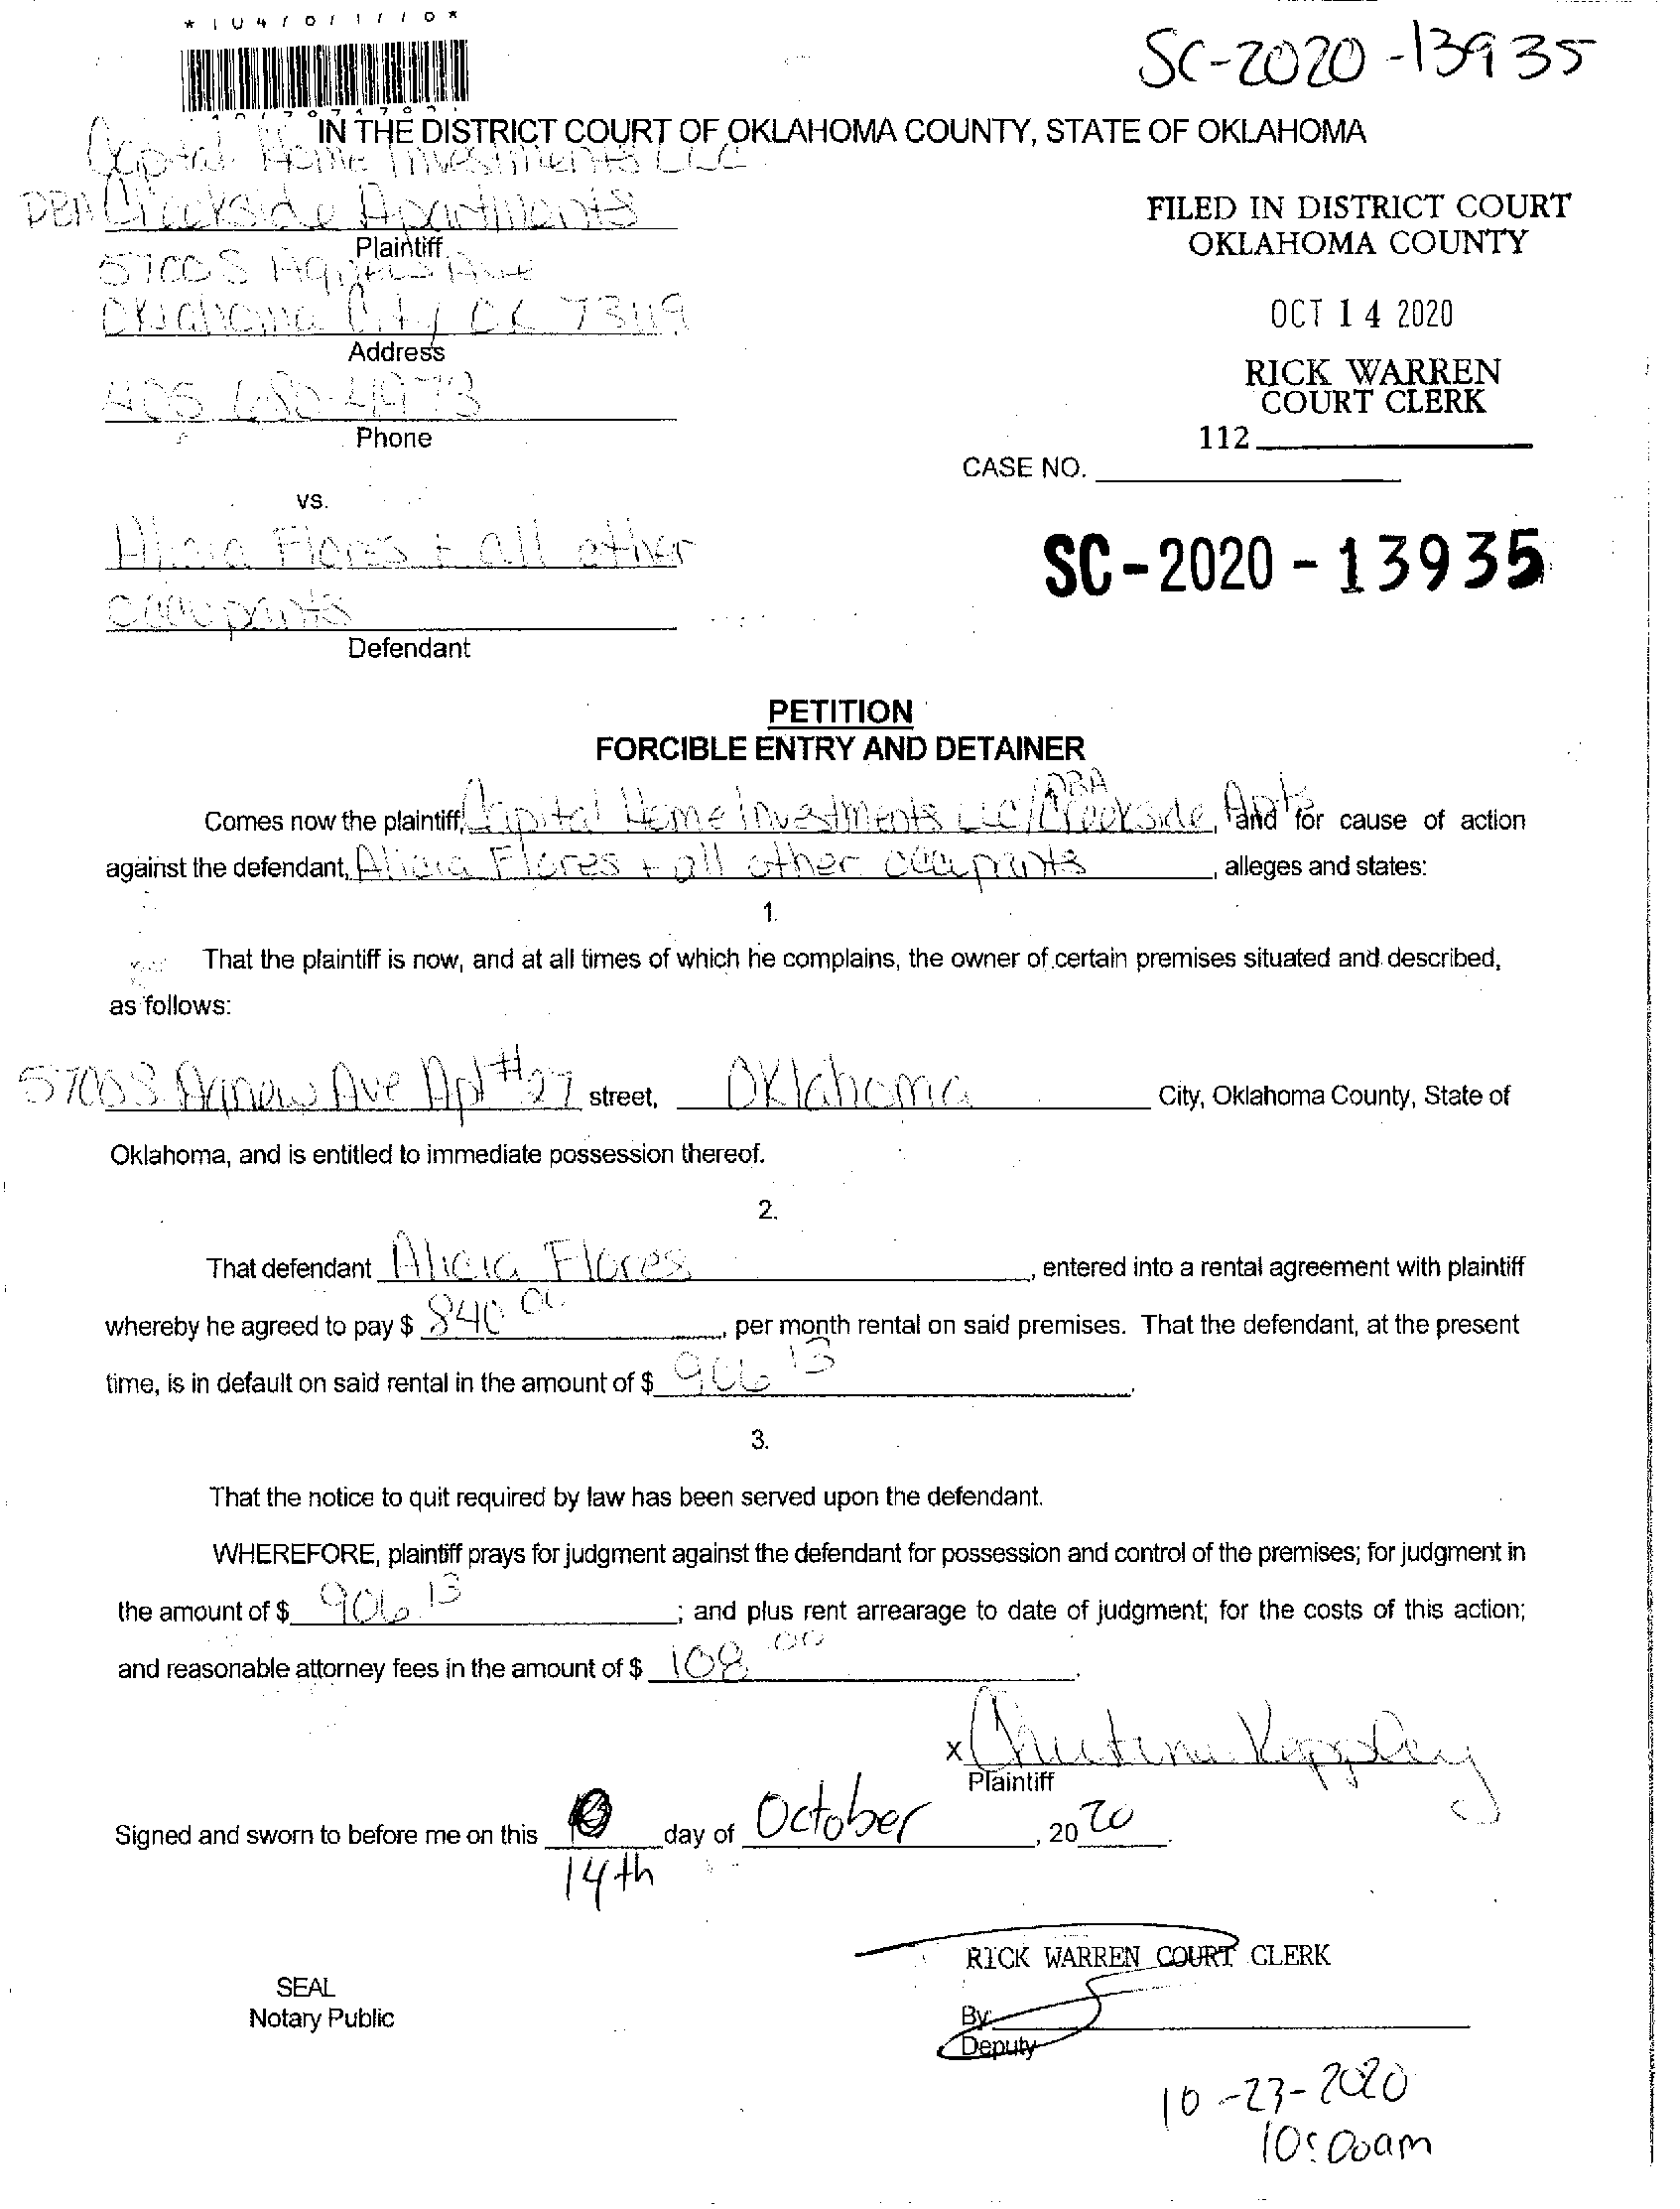 SC-2020-13935
IN THE DISTRICT COURT OF OKLAHOMA COUNTY, STATE OF OKLAHOMA
Capital Home Investments LLC
DBA Creekside Apartments
Plaintiff
5700 S Agnew Ave
Oklahoma City OK 73119
Address
405 680-4973
Phone
FILED IN DISTRICT COURT
OKLAHOMA COUNTY
OCT 14 2020
RICK WARREN
COURT CLERK
112
CASE NO.
vs.
Alicia Flores + all other
occupants
Defendant
SC-2020-13935
PETITION
FORCIBLE ENTRY AND DETAINER
Comes now the plaintiff, Capital Home Investments LLC/DBA Creekside Apts, and for cause of action
against the defendant, Alicia Flores + all other occupants, alleges and states:
1.
That the plaintiff is now, and at all times of which he complains, the owner of certain premises situated and described,
as follows:
5700 S Agnew Ave Apt #27 street, Oklahoma City, Oklahoma County, State of
Oklahoma, and is entitled to immediate possession thereof.
2.
That defendant Alicia Flores, entered into a rental agreement with plaintiff
whereby he agreed to pay $ 840.00, per month rental on said premises. That the defendant, at the present
time, is in default on said rental in the amount of $ 906 13.
3.
That the notice to quit required by law has been served upon the defendant.
WHEREFORE, plaintiff prays for judgment against the defendant for possession and control of the premises; for judgment in
the amount of $ 906.13; and plus rent arrearage to date of judgment; for the costs of this action;
and reasonable attorney fees in the amount of $ 108.00.
x Christina Keppley
Plaintiff
Signed and sworn to before me on this 14th day of October, 2020.
RICK WARREN COURT CLERK
SEAL
Notary Public
By:
Deputy
10-23-2020
10:00am